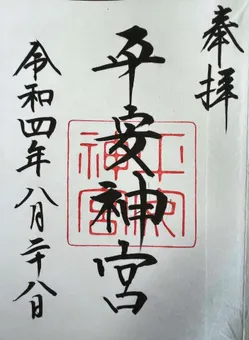 奉拝
平安神宮
平安神宮
令和四年八月二十八日